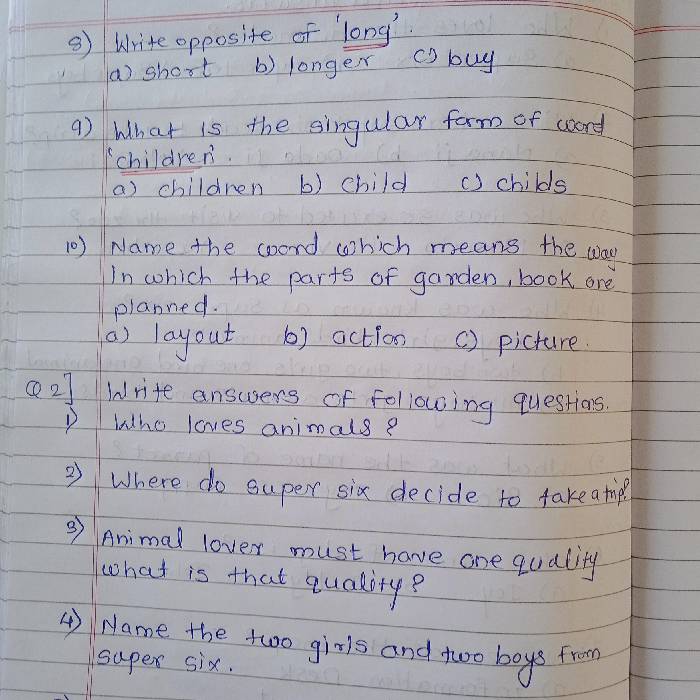 8) Write opposite of 'long'.
a) short b) longer c) buy
9) What is the singular form of word
'children'.
a) children b) child c) childs
10) Name the word which means the way
In which the parts of garden, book are
planned.
a) layout b) action c) picture.
Q 2] Write answers of following questions.
1) Who loves animals?
2) Where do super six decide to take a trip?
3) Animal lover must have one quality
what is that quality?
4) Name the two girls and two boys from
super six.